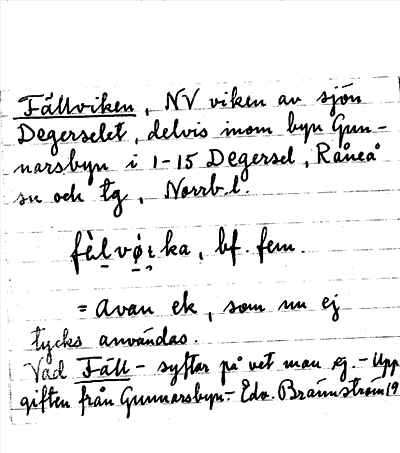 Fällviken, NV viken av sjön
Degerselet, delvis inom byn Gun-
narsbyn i 1-15 Degersel, Råneå
sn och tg, Norrb. l.
fe̖l̲vø̖ı̯ka, bf. fem.
= Avan ek, som nu ej
tycks användas.
Vad Fäll- syftar på vet man ej. - Upp
giften från Gunnarsbyn. - Edv. Brännström 19